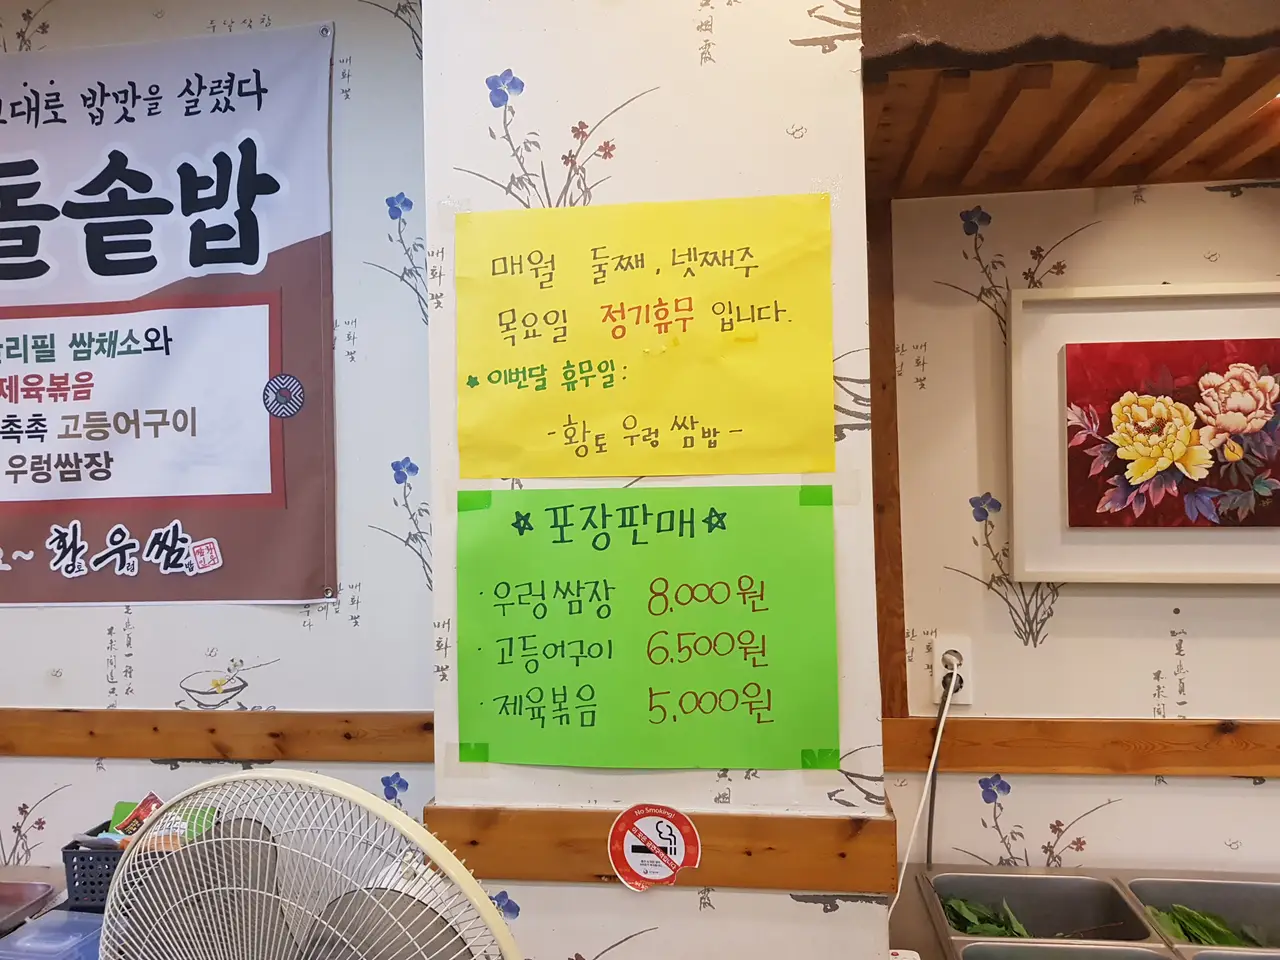 그대로 밥맛을 살렸다
돌솥밥
리필 쌈채소와
제육볶음
촉촉 고등어구이
우렁쌈장
황토우렁쌈밥
매월 둘째, 넷째주
목요일 정기휴무 입니다.
☆ 이번달 휴무일:
-황토우렁쌈밥-
☆포장판매☆
·우렁쌈장 8,000원
·고등어구이 6,500원
·제육볶음 5,000원
No Smoking!
매화꽃
매화꽃
매화꽃
매화꽃
매화꽃
매화꽃
매화꽃